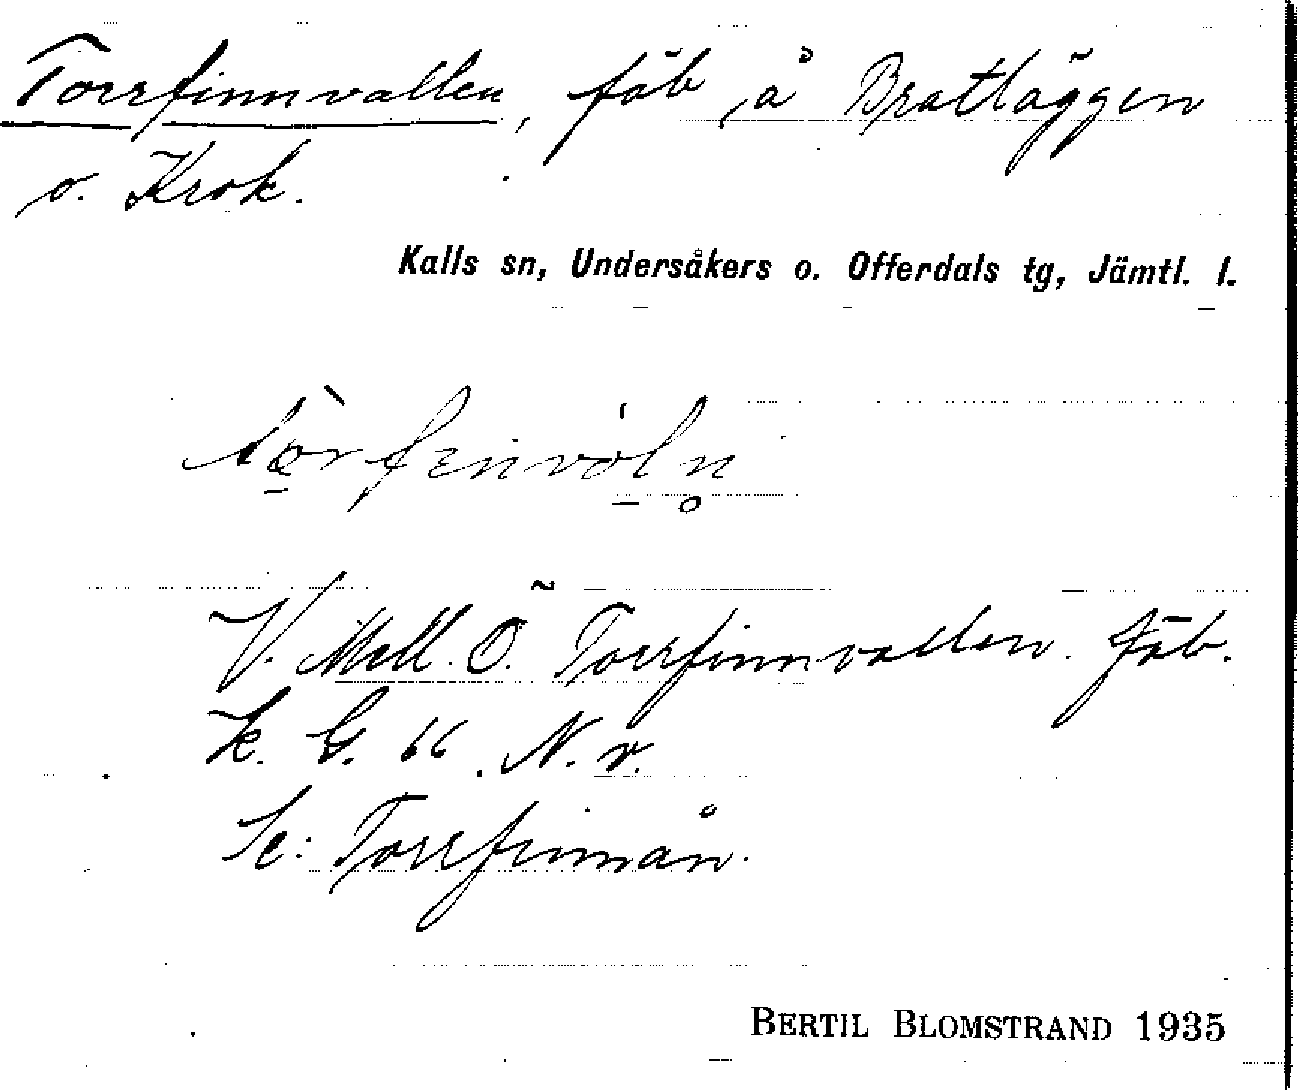 Torrfinnvallen, fäb å Bratläggen
o. Krok.
Kalls sn, Undersåkers o. Offerdals tg, Jämtl. l.
V. Mell. Ö. Torrfinnvallen. Fäb.
K. G. 66. N. v.
Se: Torrfinnån.
BERTIL BLOMSTRAND 1935